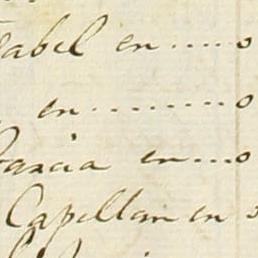 abel en.....0
en.........0
Garcia en....0
Capellan en